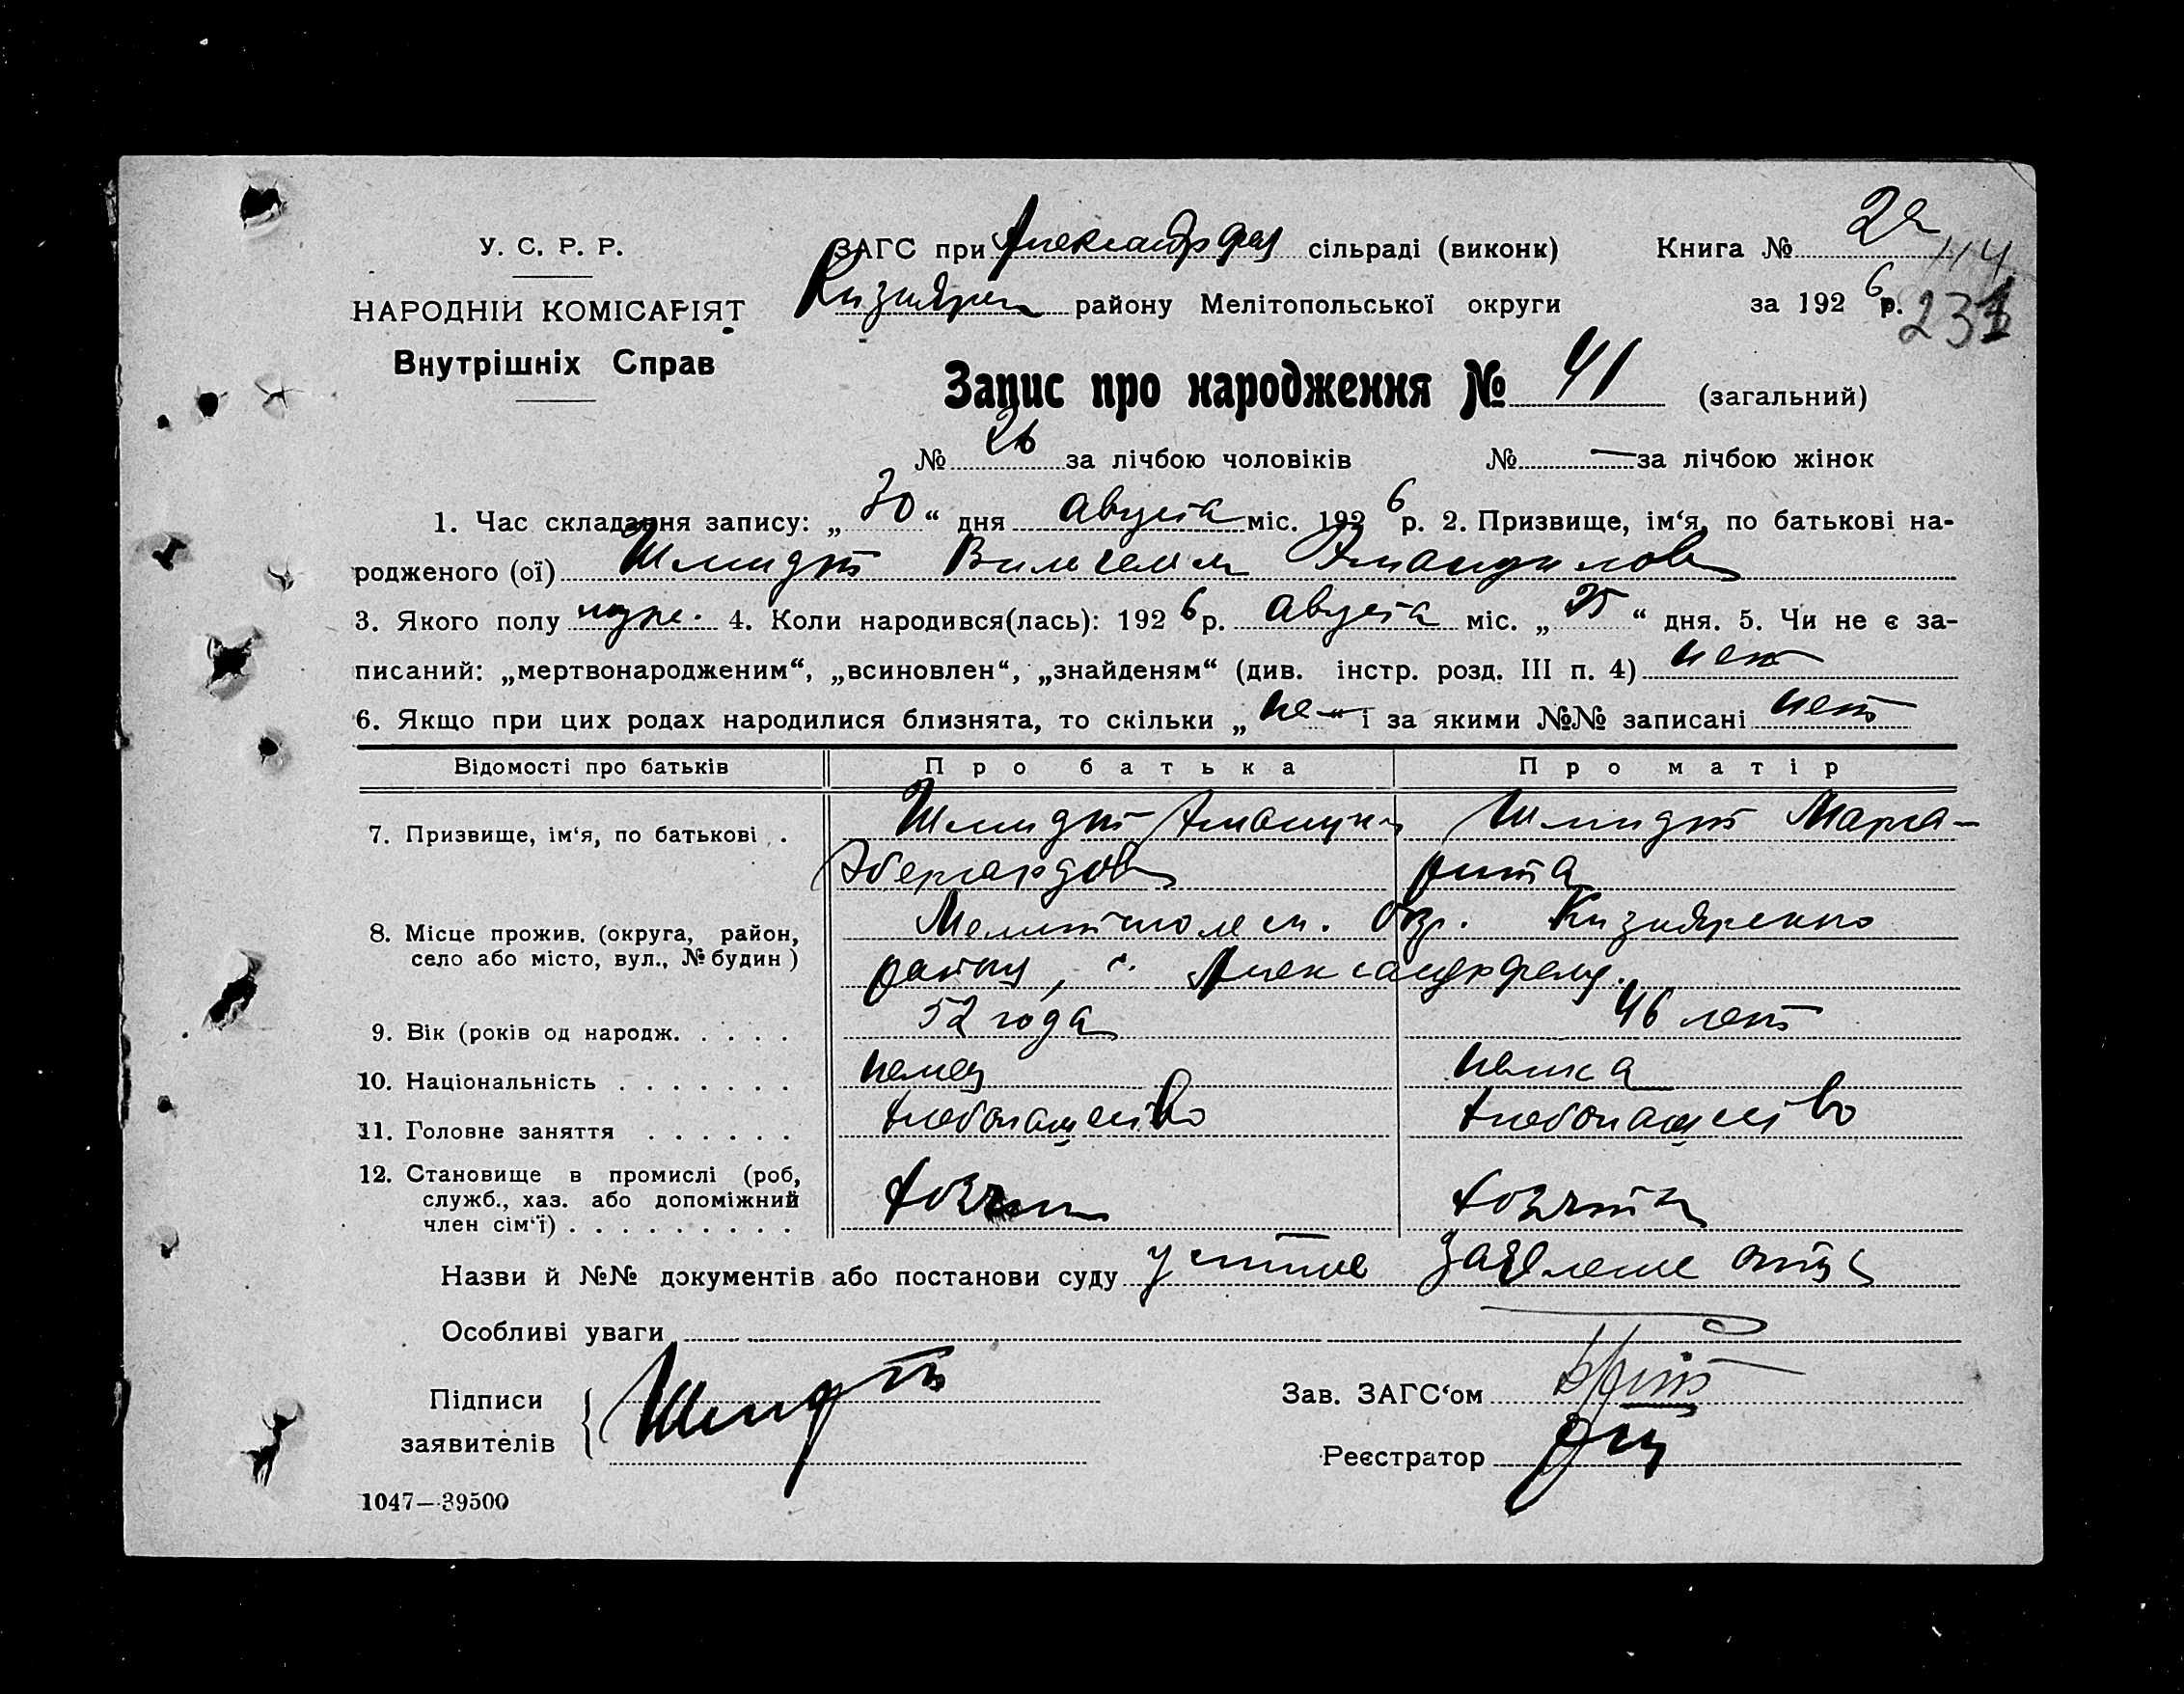 У. С. Р. Р.
НАРОДНІЙ КОМІСАРІЯТ
Внутрішніх Справ
ЗАГС при Александрфел сільраді (виконк)
Кизиярск районy Мелітопольської округи
Книга № 2а
114
за 1926 р.
231
Запис про народження № 41 (загальний)
№ 26 за лічбою чоловіків № — за лічбою жінок
1. Час складання запису: „30“ дня августа міс. 1926 р. 2. Призвище, ім‘я, по батькові на-
родженого (ої) Шмидт Вильгельм
3. Якого полу муж. 4. Коли народився(лась): 1926 р. августа міс. „25“ дня. 5. Чи не є за-
писаний: „мертвонародженим“, „всиновлен“, „знайденям“ (див. інстр. розд. III п. 4) нет
6. Якщо при цих родах народилися близнята, то скільки „не—“ і за якими №№ записані нет
Відомості про батьків Про батька Про матір
7. Призвище, ім‘я, по батькові . Шмидт Шмидт Марга-
Эбергардов рита
8. Місце прожив. (округа, район, Мелитополь ск. Окр. Кизиярского
село або місто, вул., № будин) району, с. Александрфельд.
9. Вік (років од народж. . . . . 52 года 46 лет
10. Національність . . . . . . . немец немка
11. Головне заняття . . . . . . хлебопашество хлебопашество
12. Становище в промислі (роб,
служб., хаз. або допоміжний
член сім‘ї) . . . . . . . . . хозяин хозяйка
Назви й №№ документів або постанови суду устное заявление отца
Особливі уваги
Підписи
заявителів
Шмидт
Зав. ЗАГС‘ом
Реєстратор
1047—39500